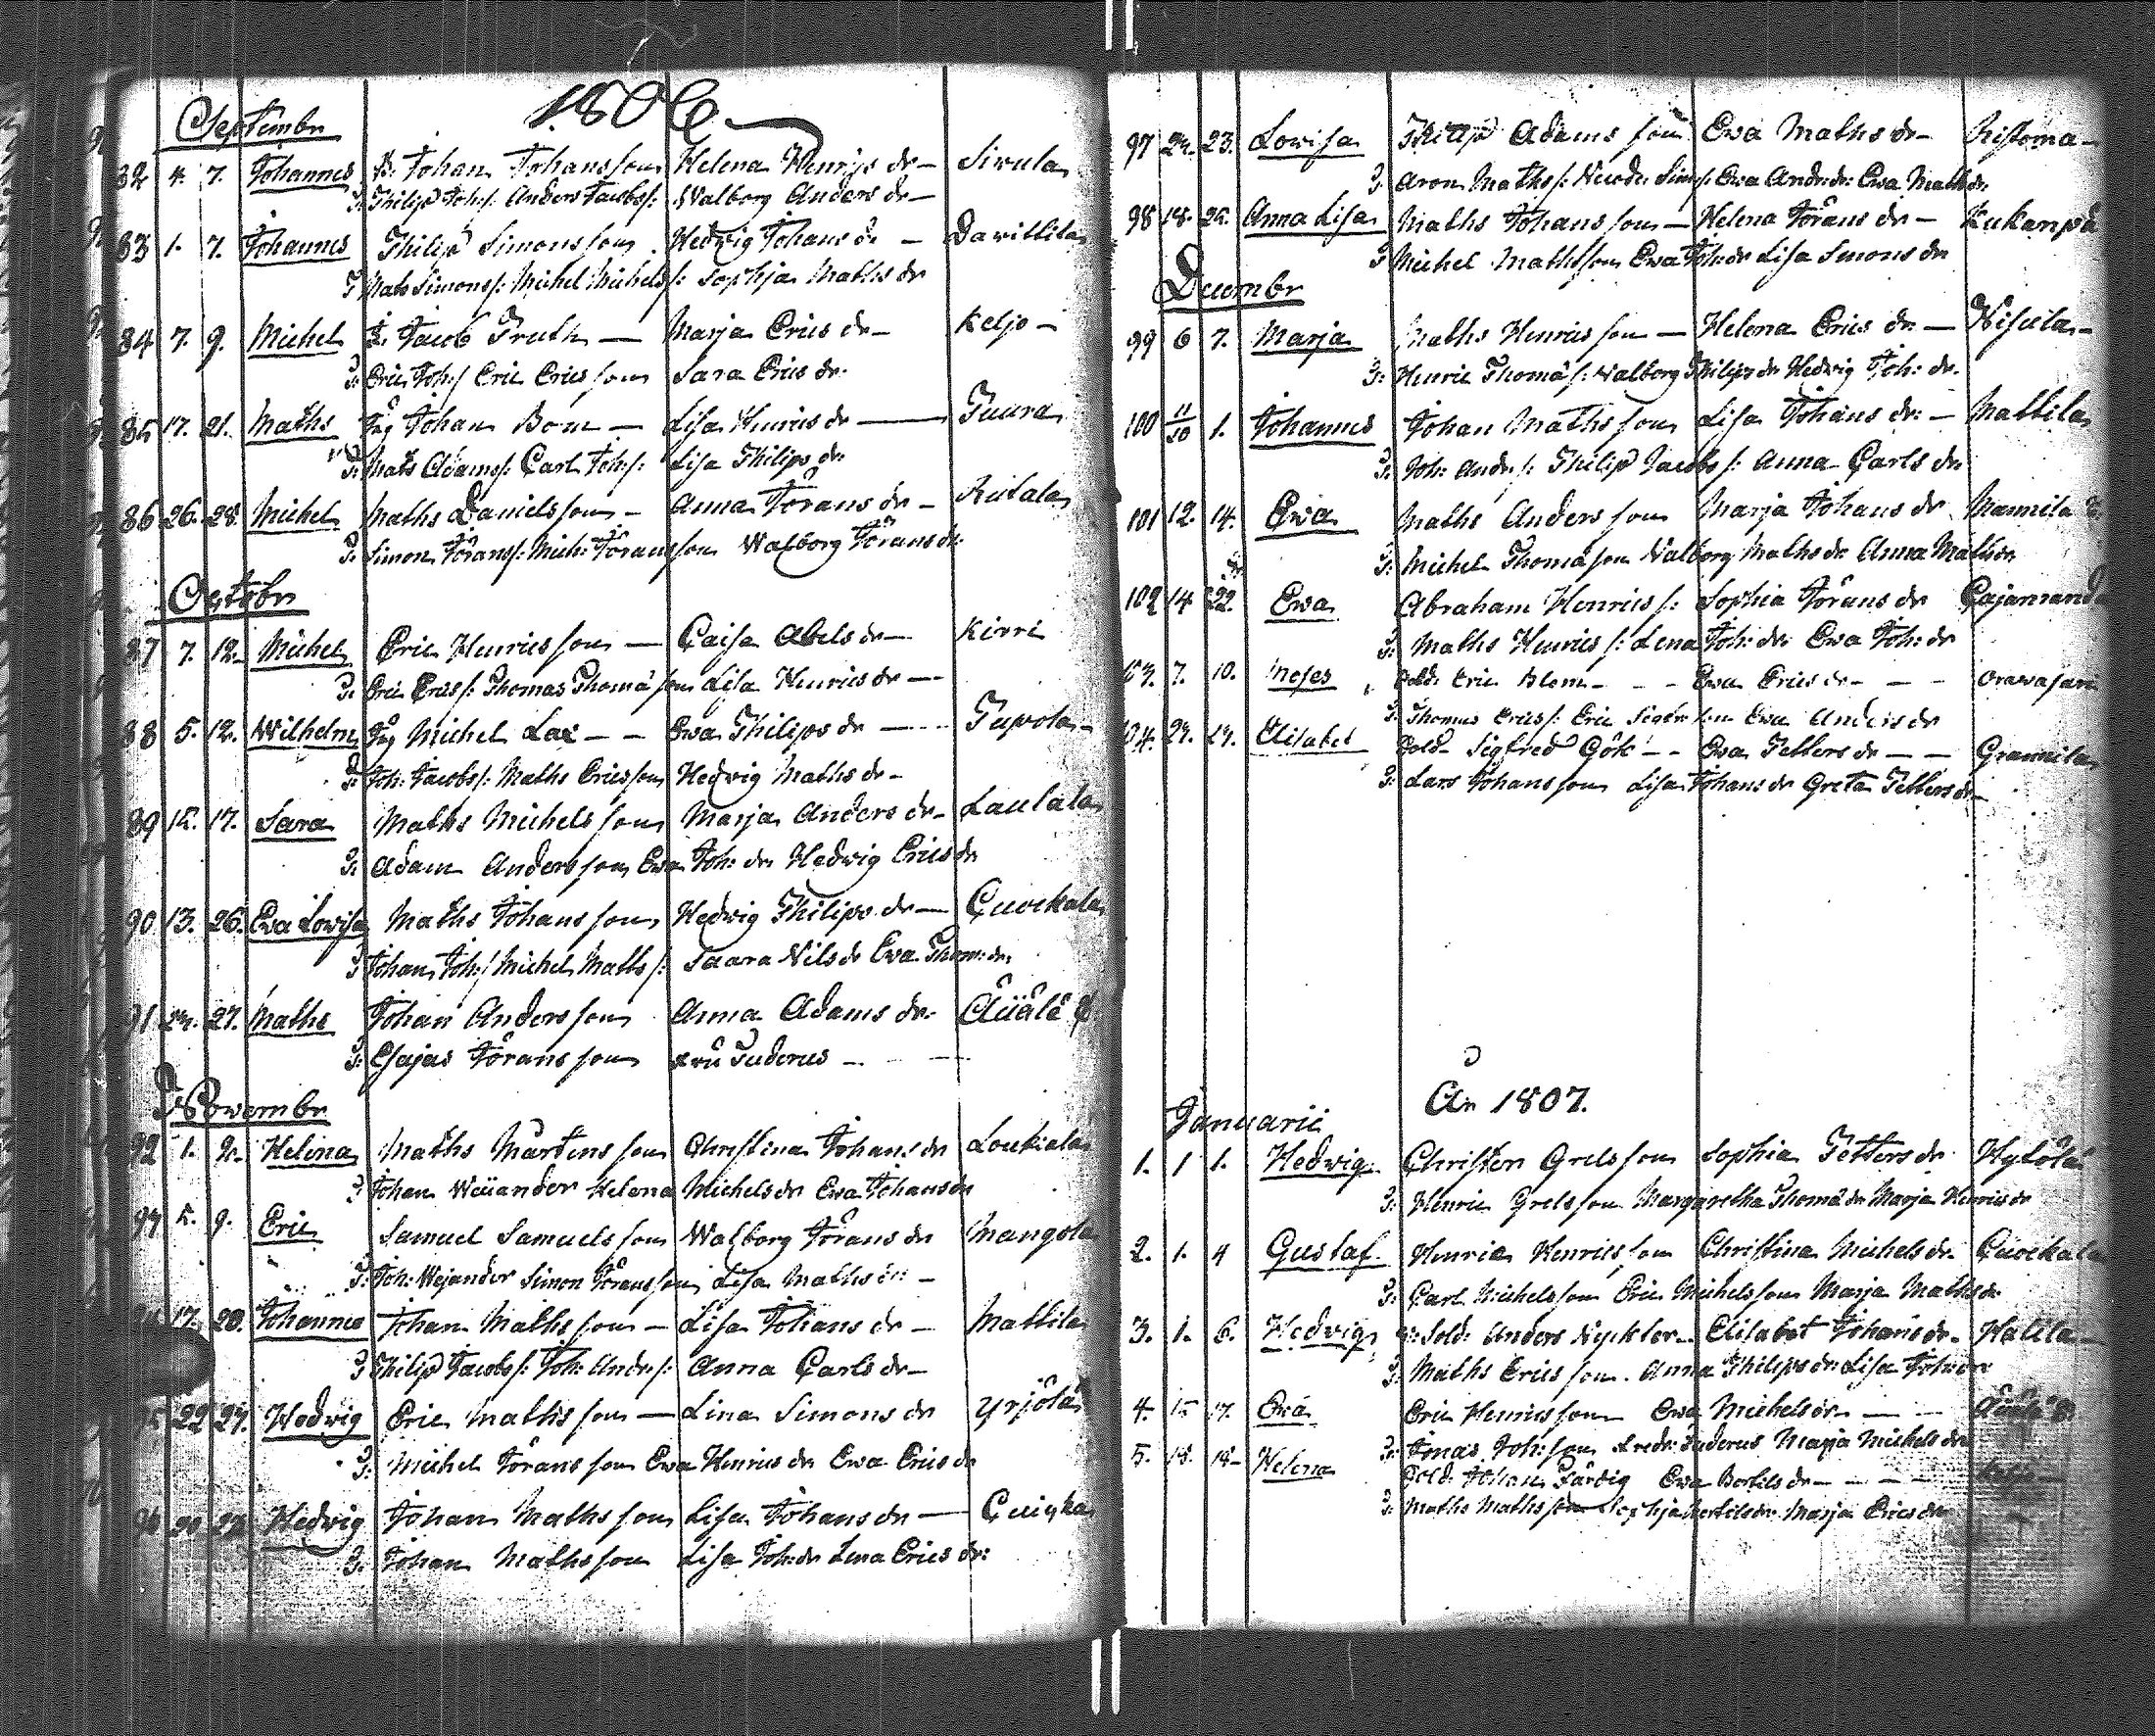 1806
Septembr
82 4. 7. Johannes B: Johan Johansson Helena Henrics dr — Sivula
G: Philip Joh:s: Anders Jacobs: Walborg Anders dr —
83 1. 7. Johannes Philip Simonsson Hedwig Johans dr — Davittila
G Mats Simons: Michel Michels: Sophja Maths dr
84 7. 9. Michel Jacob — Marja Erics dr — Keljo —
G: Eric Joh:s: Eric Ericsson Sara Erics dr.
85 17. 21. Maths Johan Bom — Lisa Henrics dr — Tuura
G: Mats Adams: Carl Joh:s: Lisa Philips dr:
86 26. 28. Michel Maths Danielsson — Anna Jörans dr —
G: Simon Jörans: Mich: Jöransson Walborg Jörans dr:
Octobr
87 7. 12. Michel Eric Henricsson — Caisa Abels dr — Kirri
G: Eric Erics: Thomas Thomäson Lisa Henrics dr —
88 5. 12. Wilhelm Michel Lax — — Ewa Philips dr — Tupola —
G: Joh: Jacobs: Maths Ericsson Hedwig Maths dr —
89 15. 17. Sara Maths Michelsson Marja Anders dr — Laulala
G: Adam Andersson Ewa Joh: dr Hedwig Erics dr
90 13. 26. Ewa Lowisa Maths Johansson Hedwig Philips dr — Cuockala
G Johan Joh:s: Michel Maths: Saara Nils dr Ewa Thom: dr:
91 24. 27. Maths Johan Andersson Anna Adams dr:
G: Esajas Jöransson Fru Tuderus —
Novembr
92 1. 2. Helena Maths Mårtensson Christina Johans dr Loukiala
G Johan Weijander Helena Michels dr Ewa Johans dr
5. 9. Eric Samuel Samuelsson Walborg Jörans dr Mangola
G: Joh: Wejander Simon Jöransson Lisa Maths dr: —
17. 20. Johannes Johan Mathsson — Lisa Johans dr — Mattila
G Philip Jacobs: Joh: Andrs: Anna Carls dr —
22 27. Hedwig Eric Mathsson — Lina Simons dr Yrjölä
G: Michel Jöransson Ewa Henrics dr Ewa Erics dr
Hedwig Johan Mathsson Lisa Johans dr —
G: Johan Mathsson Lisa Joh: dr Lena Erics dr:
97 24. 23. Lovisa Philip Adamsson Ewa Maths dr — Ristoma —
G: Aron Maths: Ewa Andr: dr: Ewa Maths dr
98 18. 24. Anna Lisa Maths Johansson — Helena Jörans dr —
G Michel Mathsson Ewa Joh: dr Lisa Simons dr
Decembr
99 6 7. Marja Maths Henricsson — Helena Erics dr — Nisula —
G: Henric Thomäs: Walborg Philips dr Hedwig Joh: dr.
100 11/30 1. Johannes Johan Mathsson Lisa Johans dr: — Mattila
G: Joh: Andrs: Philip Jacobs: Anna Carls dr
101 12. 14. Ewa Maths Andersson Marja Johans dr Mannila
G: Michel Thomäson Walborg Maths dr Anna Maths dr
102 14 22. Ewa Abraham Henrics: Sophia Jörans dr
G: Maths Henrics: Lena Joh: dr Ewa Joh: dr
7. 10. Moses Sold: Eric Blom — — — Ewa Erics dr — — — Orawasari
G: Thomas Erics: Eric Ewa Anders dr
Elisabet Sold Sigfred Gök — — Ewa Petters dr — —
G: Lars Johansson Lisa Johans dr Greta Petters dr —
År 1807.
Januarii
1. 1 1. Hedwig Christer Grelsson Sophia Petters dr Hytölä
G: Henric Grelsson Margaretha Thomä dr Marja Henrics dr
2. 1. 4 Gustaf Henric Henricsson Christina Michels dr Cuockala
G: Carl Michelsson Eric Michelsson Marja Maths dr
3. 1. 6. Hedwig Sold: Anders Nyckter — Elisabet Johans dr — Halila
G: Maths Ericsson Anna Philips dr Lisa Joh: dr
4. 15 17. Ewa Eric Henricsson Ewa Michels dr — —
G: Jonas Joh:son Tuderus Marja Michels dr
5. 18. 18 — Helena Sold: Johan Färdig Ewa Bertils dr — — —
G: Maths Mathsson Sophja Bertils dr Marja Erics dr